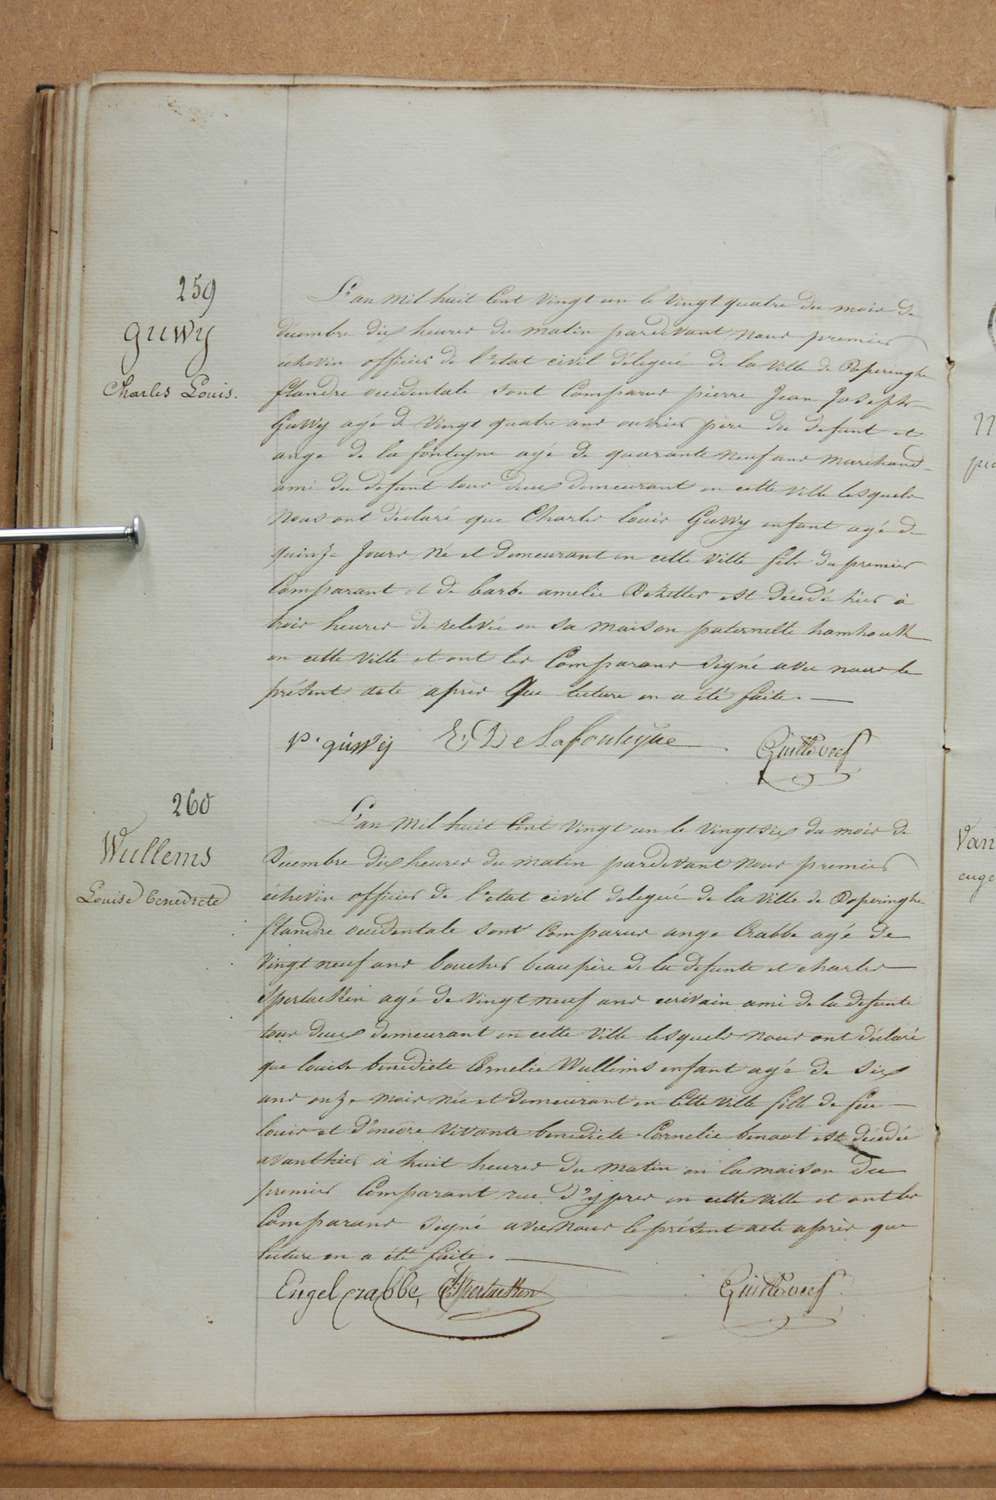 259
Guwy
Charles Louis.
L'an mil huit cent vingt un le vingt quatre du mois de
décembre dix heures du matin pardevant nous premier
échevin officier de l'etat civil délégué de la ville de Poperinghe
flandre occidentale sont comparus pierre Jean Joseph
Guwy agé de vingt quatre ans ouvrier père du defunt et
ange de la fonteyne agé de quarante neuf ans marchand
ami du defunt tous deux demeurant en cette ville lesquels
nous ont déclaré que Charles louis Guwy enfant agé de
quinze jours né et demeurant en cette ville fils du premier
comparant et de barbe amelie Deketter est décédé hier à
trois heures de relevée en sa maison paternelle hamhoek
en cette ville et ont les comparans signé avec nous le
présent acte après que lecture en a été faite.
P. guwij E, De Lafonteyne
260
Wullems
Louise benedicte
L'an mil huit cent vingt un le vingt six du mois de
decembre dix heures du matin pardevant nous premier
échevin officier de l'etat civil delegué de la ville de Poperinghe
flandre occidentale sont comparus ange Crabbe agé de
vingt neuf ans boucher beaupère de la defunte et charles
Spertaelken agé de vingt neuf ans ecrivain ami de la defunte
tous deux demeurant en cette ville lesquels nous ont déclaré
que louise benedicte Cornelie Wullems enfant agé de six
ans onze mois née et demeurant en cette ville fille de feu
louis et d'encore vivante benedicte Cornelie benoot est décédée
avanthier à huit heures du matin en la maison du
premier comparant rue d'ypres en cette ville et ont les
comparans signé avec nous le présent acte après que
lecture en a été faite.
Engel crabbe,
Van
euge